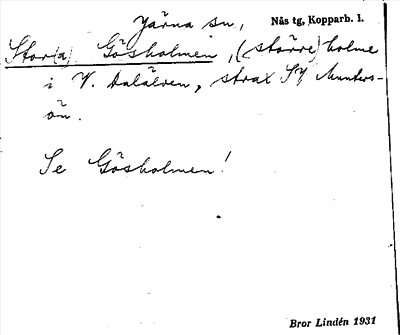 Järna sn, Nås tg, Kopparb. l.
Stor(a) Gösholmen, (större) holme
i V. Dalälven, strax SV Munters-
ön.
Se Gösholmen!
Bror Lindén 1931